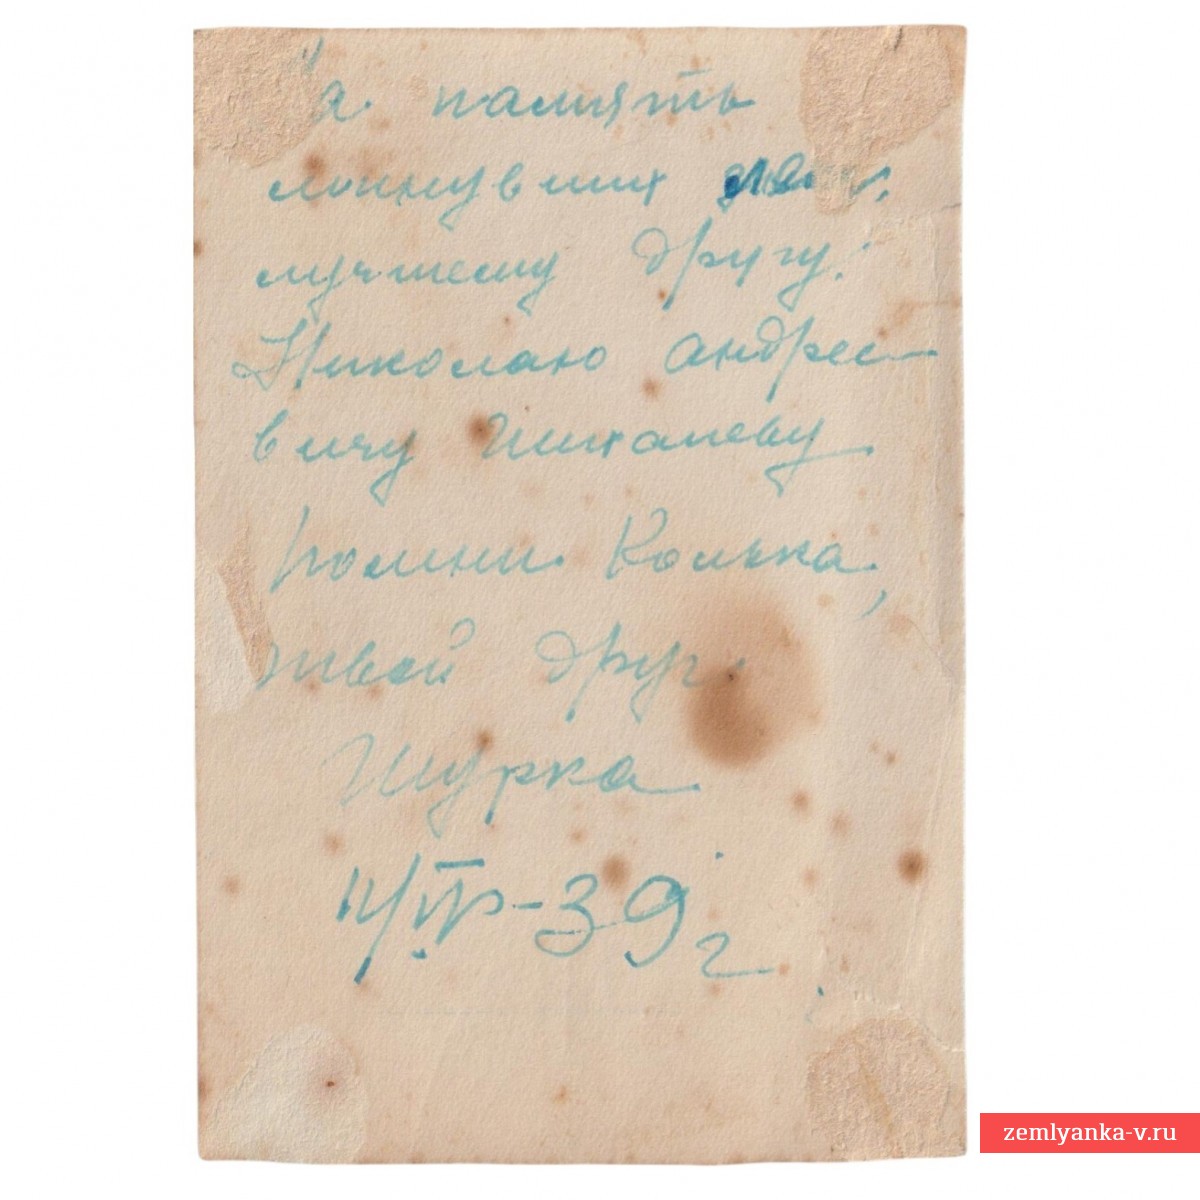 а память
минувших дней
лучшему другу:
Николаю Андрее-
вичу Шихалеву
Помни Колька,
твой друг
Шурка
11/IV-39 г.
zemlyanka-v.ru